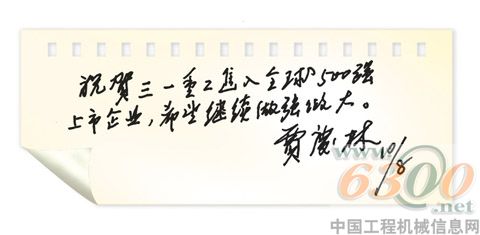 祝贺三一重工进入全球500强
上市企业，希望继续做强做大。
贾庆林 10/8
www.6300.net
中国工程机械信息网